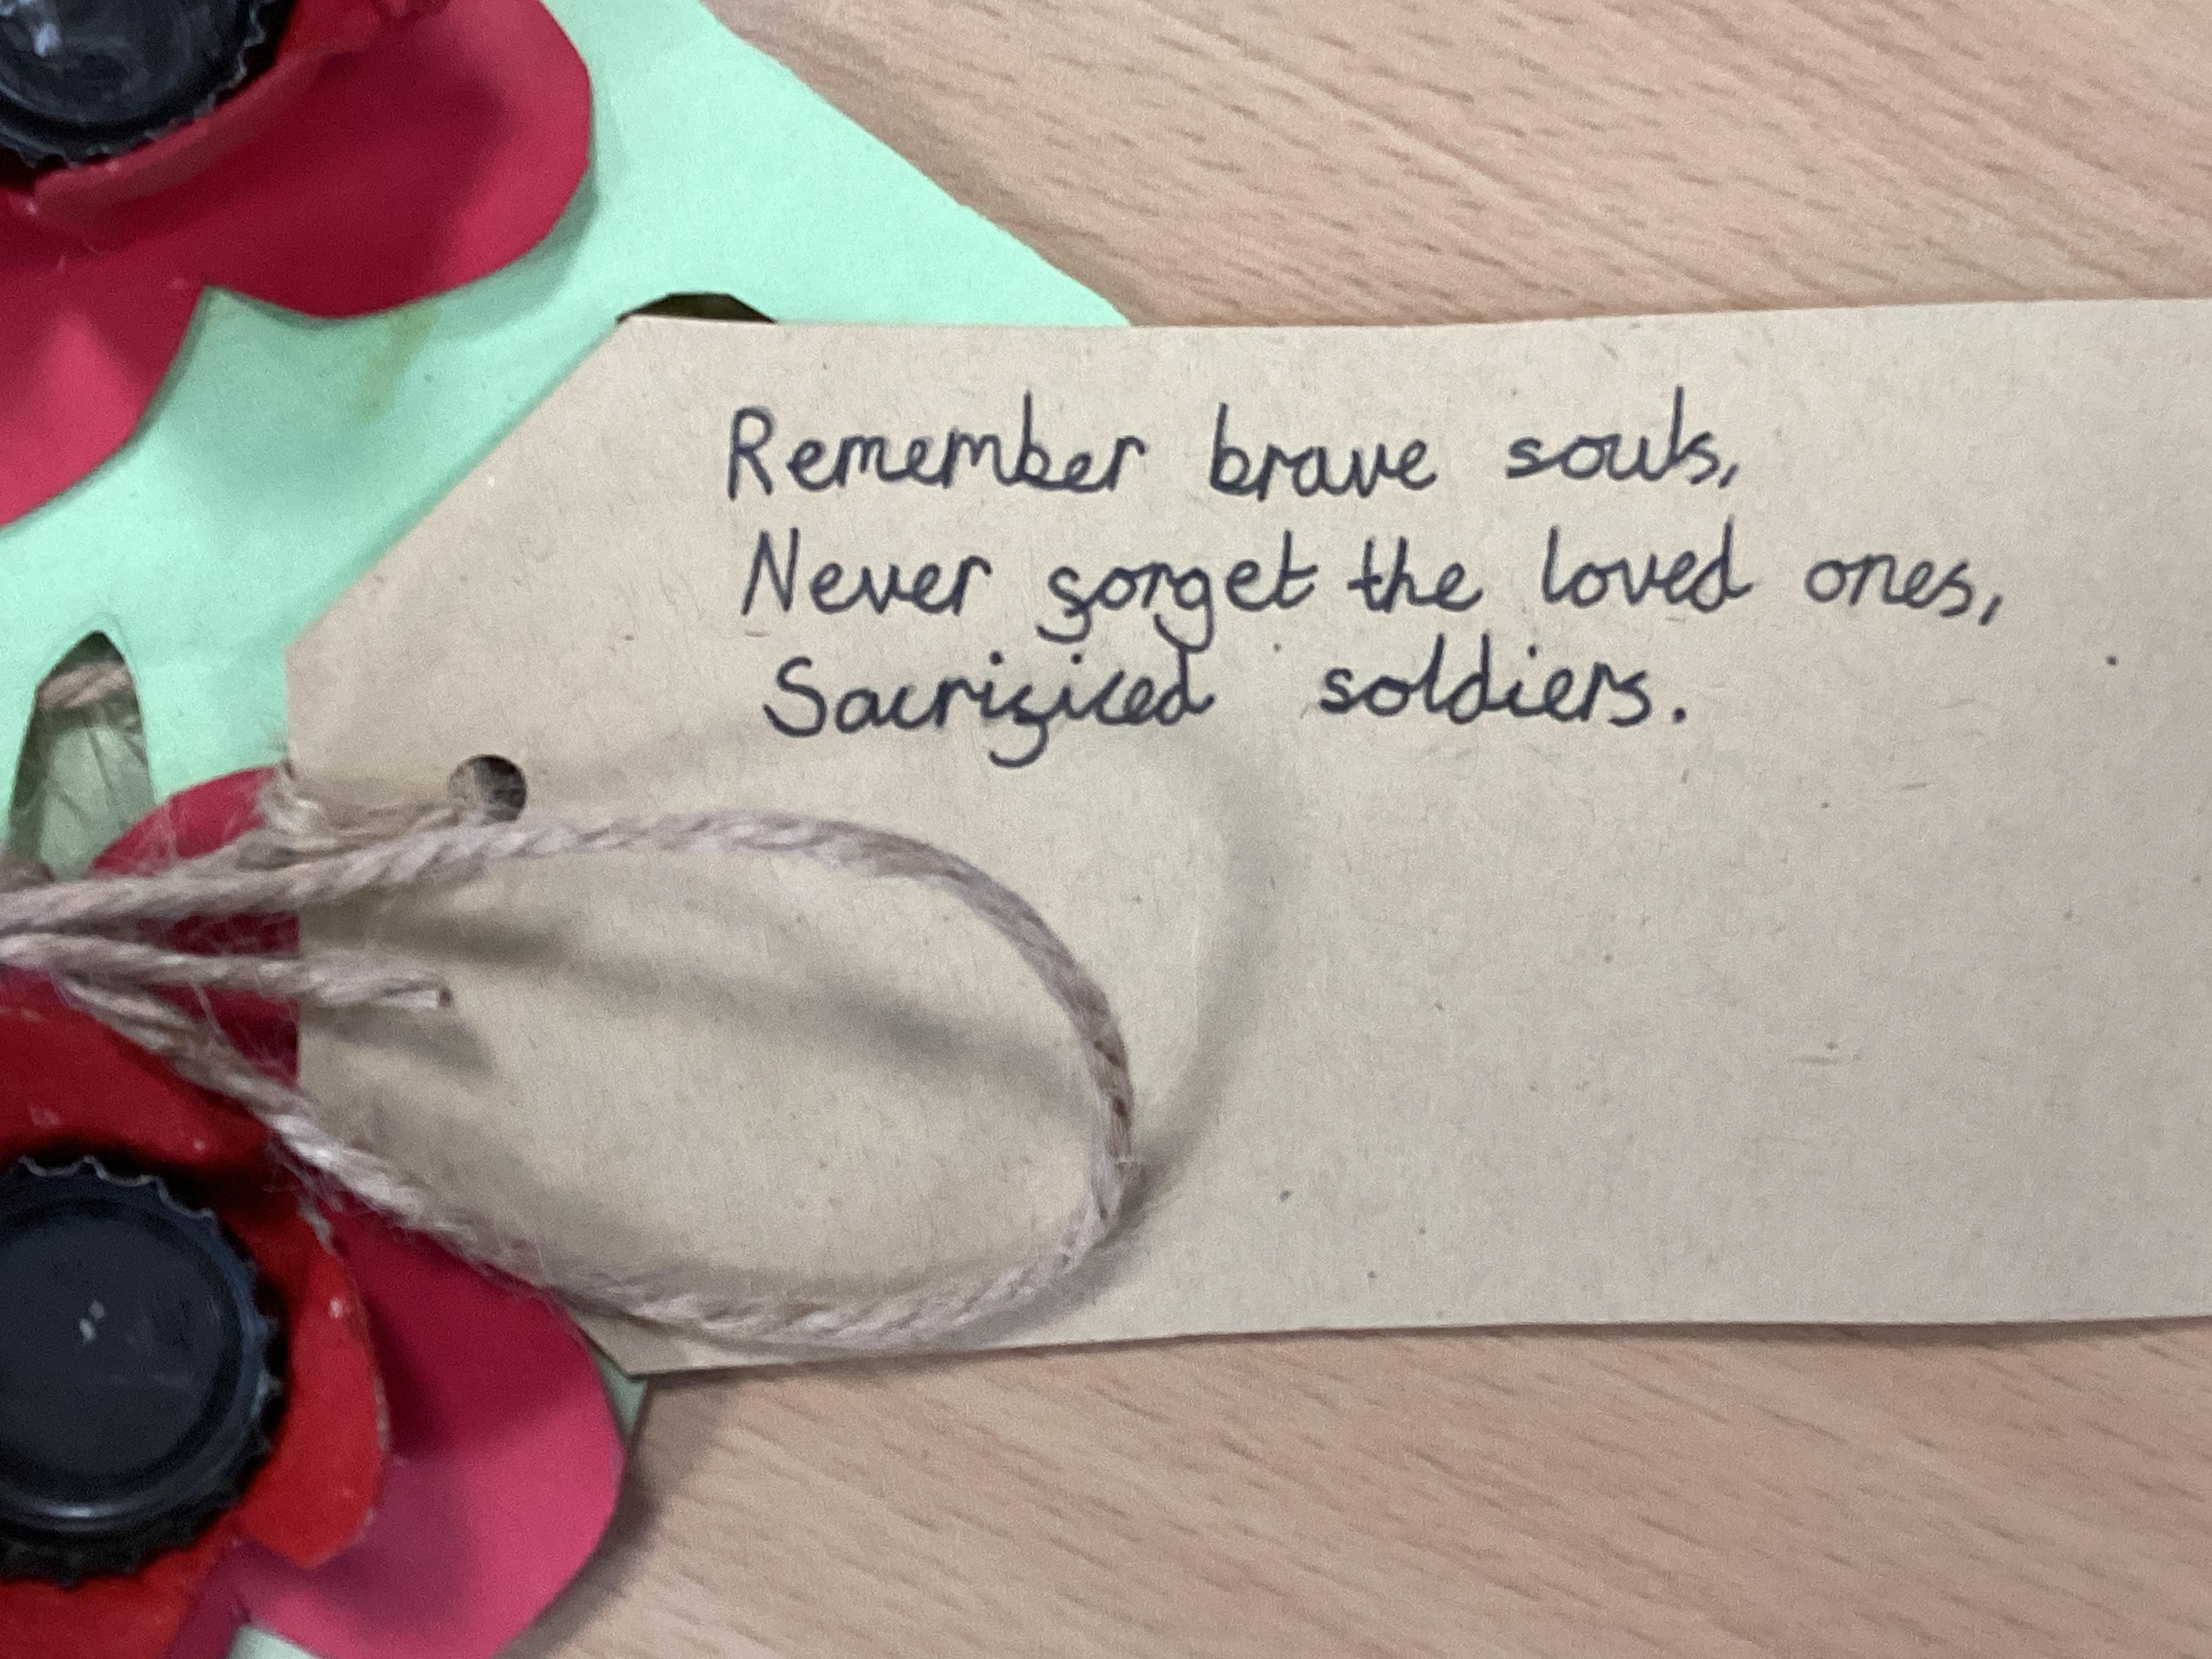 Remember brave souls,
Never forget the loved ones,
Sacrificed soldiers.